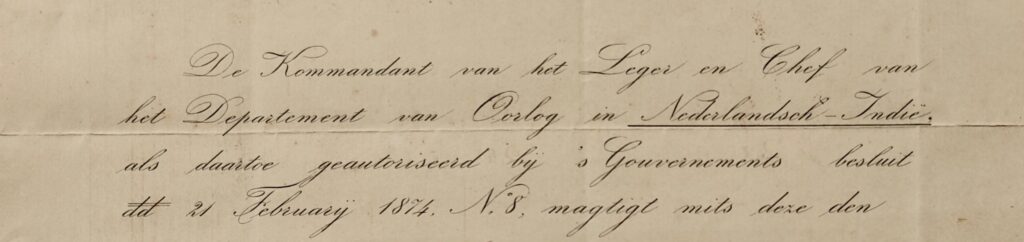 De Kommandant van het Leger en Chef van
het Departement van Oorlog in Nederlandsch-Indië.
als daartoe geautoriseerd bij 's Gouvernements besluit
dd 21 Februarij 1874. No. 8, magtigt mits deze den